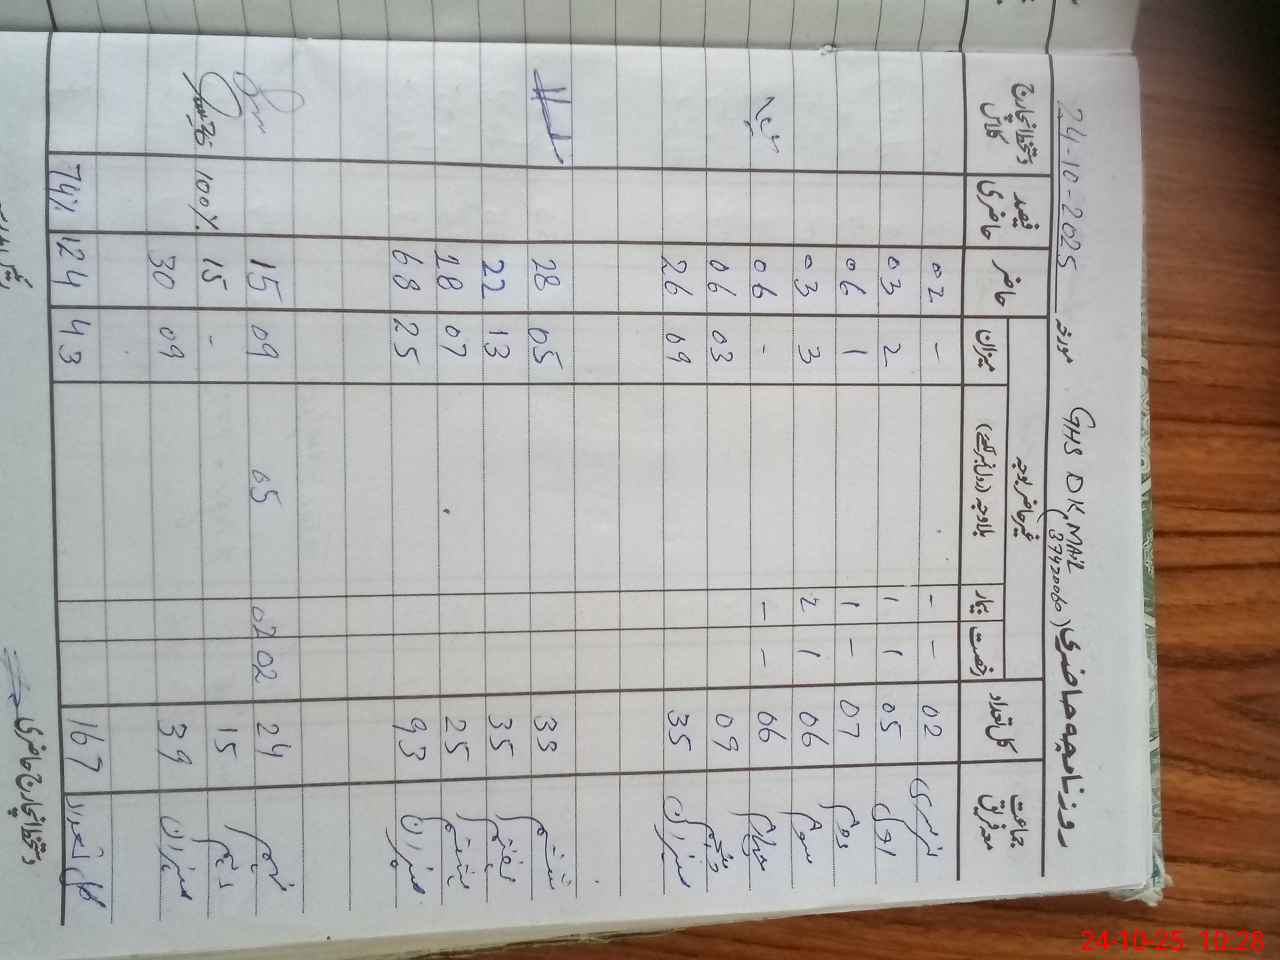 روزنامچہ حاضری GHS DK, MAIL مورخہ 24-10-2025
(37420060)
جماعت معہ فریق کل تعداد غیر حاضر بوجہ حاضر فیصد حاضری دستخط انچارج کلاس
رخصت بیمار بلاوجہ (رول نمبر لکھئے) میزان
نرسری 02 - - - 02
اول 05 1 1 2 03
دوم 07 - 1 1 06
سوم 06 1 2 3 03
چہارم 06 - - - 06
پنجم 09 03 06
میزان 35 09 26
ششم 33 05 28
ہفتم 35 13 22
ہشتم 25 07 18
میزان 93 25 68
نہم 24 02 02 05 09 15
دہم 15 - 15 100%
میزان 39 09 30
کل تعداد 167 43 124 74%
دستخط انچارج حاضری